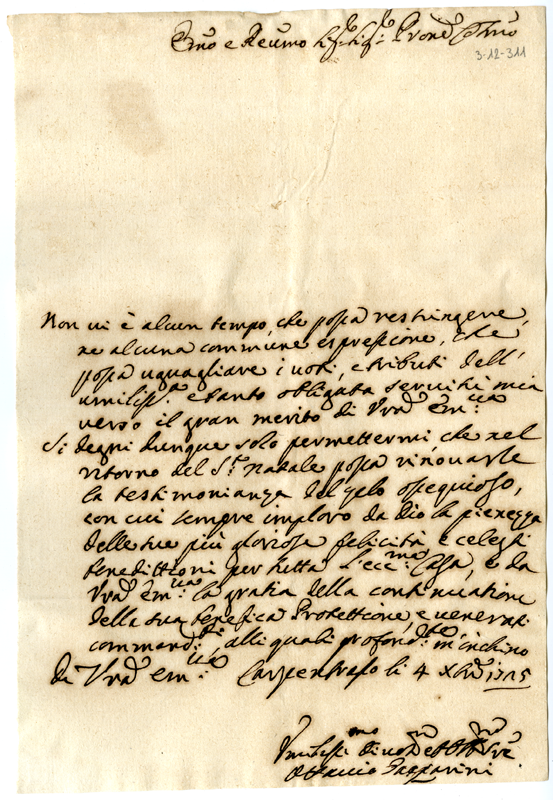 Em̃o e Reumo Sig.r Sig.r Pron.e
3-12-311
Non ui è alcun tempo, che possa restringere,
ne alcuna commune espressione, che
possa uguagliare i uoti, e tributi dell'
umiliss.a e tanto obligata seruitù mia
uerso il gran merito di Vr̃a Em.za
Si degni dunque solo permettermi, che nel
ritorno del S.to Natale possa rinouarle
la testimonianza del zelo ossequioso,
con cui sempre imploro da Dio la pienezza
delle sue più gloriose felicità e celesti
benedittioni per tutta l'Ecc.ma Casa, e da
Vr̃a Em.za la gratia della continuatione
della sua benefica Protettione, e uenerati
command.ti, alli quali profond.te m'inchino
di Vr̃a Em.za Carpentrasso li 4 Xbre 1715
Umiliss.mo diuot.mo et Obb.mo Ser.re
Ottauio Gasparini